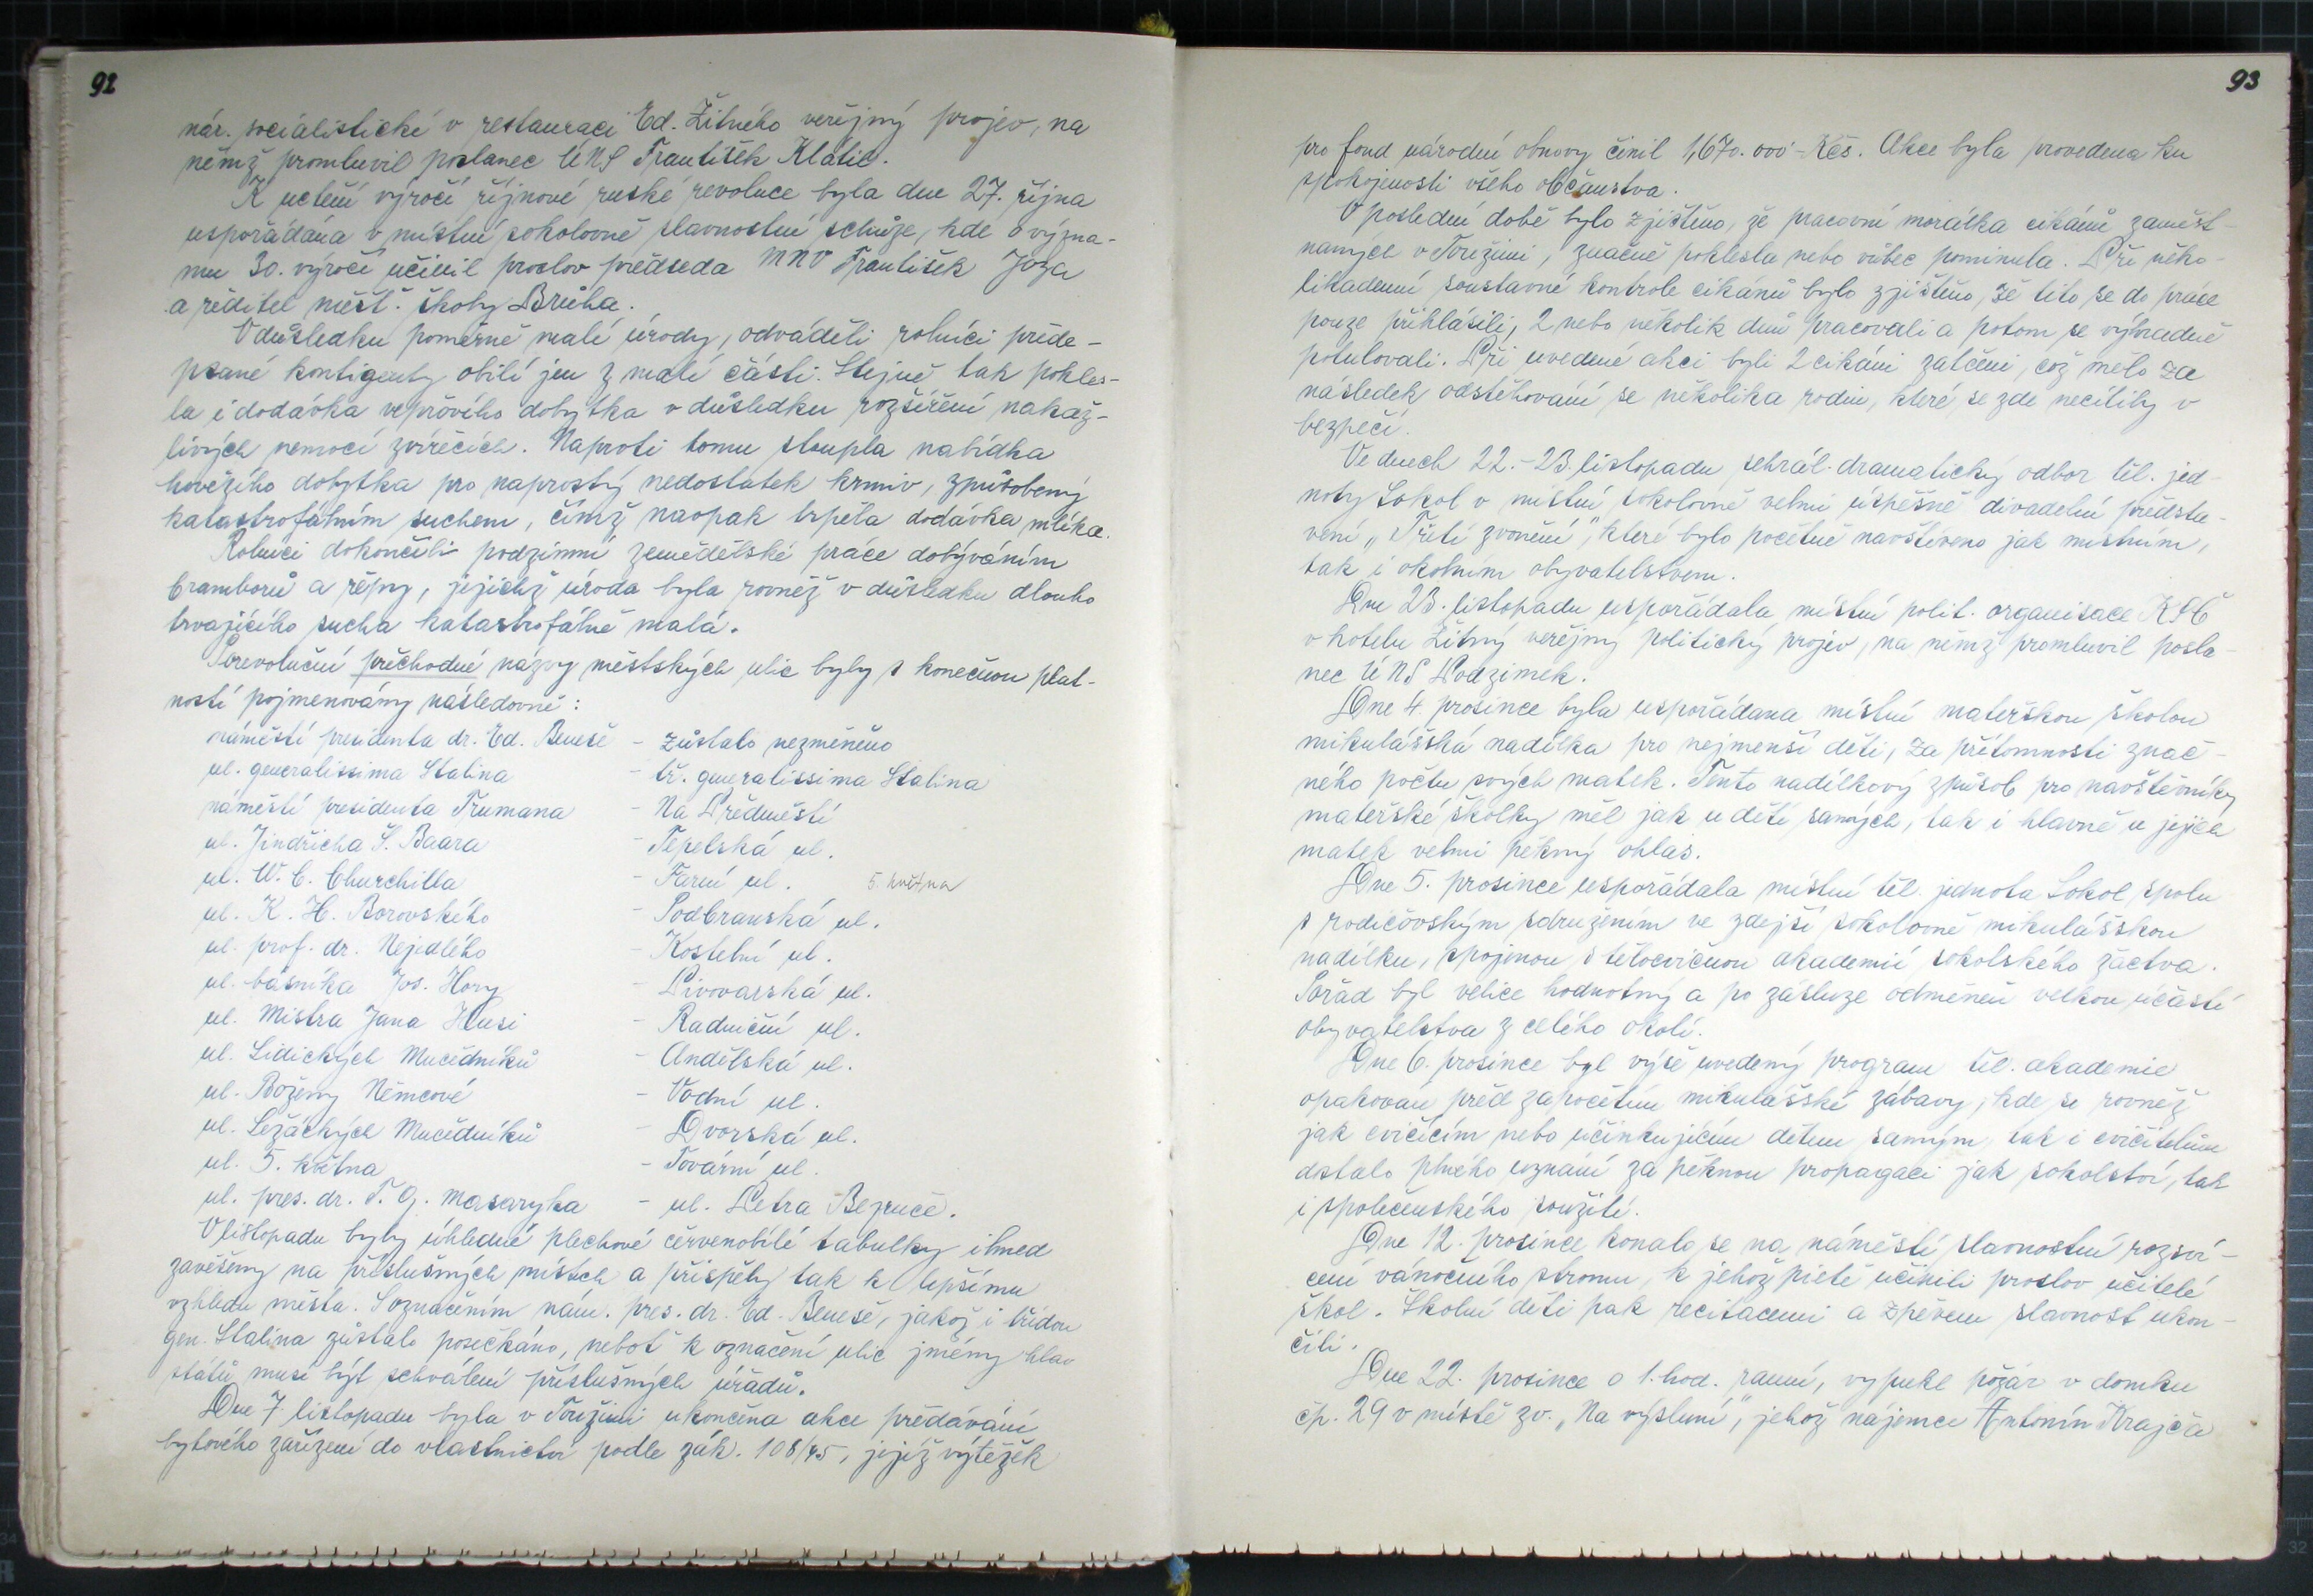 92
nár. socialistické v restauraci Ed. Žitného veřejný projev, na
němž promluvil poslanec ÚNS František Klátil.
K uctění výročí říjnové ruské revoluce byla dne 27. října
uspořádána v místní sokolovně slavnostní schůze, kde o význa-
mu 30. výročí učinil proslov předseda MNV František Joza
a ředitel měšť. školy Brůha.
V důsledku poměrně malé úrody, odváděli rolníci přede-
psané kontigenty obilí jen z malé části. Stejně tak pokles-
la i dodávka vepřového dobytka v důsledku rozšíření nakaž-
livých nemocí zvířecích. Naproti tomu stoupla nabídka
hovězího dobytka pro naprostý nedostatek krmiv, způsobený
katastrofálním suchem, čímž naopak trpěla dodávka mléka.
Rolníci dokončili podzimní zemědělské práce dobýváním
bramborů a řepy, jejichž úroda byla rovněž v důsledku dlouho
trvajícího sucha katastrofálně malá.
Porevoluční přechodné názvy městských ulic byly s konečnou plat-
ností pojmenovány následovně:
náměstí presidenta dr. Ed. Beneše - zůstalo nezměněno
ul. generalissima Stalina - tř. generalissima Stalina
náměstí presidenta Trumana - Na Předměstí
ul. Jindřicha Š. Baara - Tepelská ul.
ul. W. C. Churchilla - Farní ul. 5. května
ul. K. H. Borovského - Podbranská ul.
ul. prof. dr. Nejedlého - Kostelní ul.
ul. básníka Jos. Hory - Pivovarská ul.
ul. Mistra Jana Husi - Radniční ul.
ul. Lidických Mučedníků - Andělská ul.
ul. Boženy Němcové - Vodní ul.
ul. Ležáckých Mučedníků - Dvorská ul.
ul. 5. května - Tovární ul.
ul. pres. dr. T. G. Masaryka - ul. Petra Bezruče.
V listopadu byly úhledné plechové červenobílé tabulky ihned
zavěšeny na příslušných místech a přispěly tak k lepšímu
vzhledu města. S označením nám. pres. dr. Ed. Beneše, jakož i třídou
gen. Stalina zůstalo posečkáno, neboť k označení ulic jmény hlav
států musí být schválení příslušných úřadů.
Dne 7. listopadu byla v Toužimi ukončena akce předávání
bytového zařízení do vlastnictví podle zák. 108/45, jejíž výtěžek
93
pro fond národní obnovy činil 1,670.000 - Kčs. Akce byla provedena ku
spokojenosti všeho občanstva.
V poslední době bylo zjištěno, že pracovní morálka cikánů zaměst-
naných v Toužimi, značně poklesla nebo vůbec pominula. Při něko-
likadenní soustavné kontrole cikánů bylo zjištěno, že tito se do práce
pouze přihlásili, 2 nebo několik dnů pracovali a potom se výhradně
potulovali. Při uvedené akci byli 2 cikáni zatčeni, což mělo za
následek odstěhování se několika rodin, které se zde necítily v
bezpečí.
Ve dnech 22.-23. listopadu sehrál dramatický odbor těl. jed-
noty Sokol v místní sokolovně velmi úspěšně divadelní předsta-
vení „Třetí zvonění", které bylo početně navštíveno jak místním,
tak i okolním obyvatelstvem.
Dne 23. listopadu uspořádala místní polit. organisace KSČ
v hotelu Žitný veřejný politický projev, na němž promluvil posla-
nec ÚNS Podzimek.
Dne 4. prosince byla uspořádána místní mateřskou školou
mikulášská nadílka pro nejmenší děti, za přítomnosti znač-
ného počtu svých matek. Tento nadílkový způsob pro navštěvníky
mateřské školky měl jak u dětí samých, tak i hlavně u jejich
matek velmi pěkný ohlas.
Dne 5. prosince uspořádala místní těl. jednota Sokol spolu
s rodičovským sdružením ve zdejší sokolovně mikulášskou
nadílku, spojenou s tělocvičnou akademií sokolského žactva.
Pořad byl velice hodnotný a po zásluze odměněn velkou účastí
obyvatelstva z celého okolí.
Dne 6. prosince byl výše uvedený program těl. akademie
opakován před započetím mikulášské zábavy, kde se rovněž
jak cvičícím nebo účinkujícím dětem samým tak i cvičitelům
dstalo plného uznání za pěknou propagaci jak sokolství, tak
i společenského soužití.
Dne 12. prosince konalo se na náměstí slavnostní rozsví-
cení vánočního stromu, k jehož pietě učinili proslov učitelé
škol. Školní děti pak recitacemi a zpěvem slavnost ukon-
čili.
Dne 22. prosince o 1. hod. ranní, vypukl požár v domku
čp. 29 v místě zv. „Na výsluní", jehož nájemce Antonín Krajča